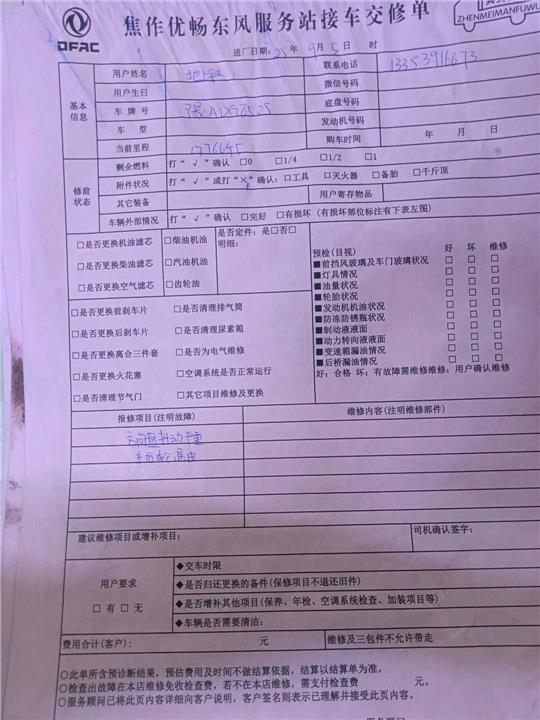 DFAC
焦作优畅东风服务站接车交修单
ZHENMEIMANFUWU
送厂日期:25年 9月5日 时
基本信息
用户姓名
联系电话 13353916673
用户生日
微信号码
车 牌 号
底盘号码
车 型
发动机号码
当前里程 1776645
购车时间 年 月 日
修前状态
剩余燃料 打“√”确认 □0 □1/4 □1/2 □1
附件状况 打“√”或打“×”确认:□工具 □灭火器 □备胎 □千斤顶
其它装备 用户寄存物品
车辆外部情况 打“√”确认 □完好 □有损坏 (有损坏部位标注有下表左图)
□是否更换机油滤芯 □柴油机油
□是否更换柴油滤芯 □汽油机油
□是否更换空气滤芯 □齿轮油
是否定件: 是□否□
明细:
□是否更换前刹车片 □是否清理排气筒
□是否更换后刹车片 □是否清理尿素箱
□是否更换离合三件套 □是否为电气维修
□是否更换火花塞 □空调系统是否正常运行
□是否清理节气门 □其它项目维修及更换
预检(目视) 好 坏 维修
■前挡风玻璃及车门玻璃状况 □ □ □
■灯具情况 □ □ □
■油量状况 □ □ □
■轮胎状况 □ □ □
■发动机机油状况 □ □ □
■防冻防锈瓶状况 □ □ □
■制动液液面 □ □ □
■动力转向液液面 □ □ □
■变速箱漏油情况 □ □ □
■后桥漏油情况 □ □ □
好:合格 坏:有故障需维修维修:用户确认维修
报修项目(注明故障)
维修内容(注明维修部件)
方向盘转动重
漏油
建议维修项目或增补项目:
司机确认签字:
用户要求
□有 □无
◆交车时限
◆是否归还更换的备件(保修项目不退还旧件)
◆是否增补其他项目(保养、年检、空调系统检查、加装项目等)
◆车辆是否需要清洁:
费用合计(客户): 元 维修及三包件不允许带走
○此单所含预诊断结果,预估费用及时间不做结算依据,结算以结算单为准。
○检查出故障在本店维修免收检查费,若不在本店维修,需支付检查费 元。
○服务顾问已将此页内容详细向客户说明,客户签名则表示已理解并接受此页内容。